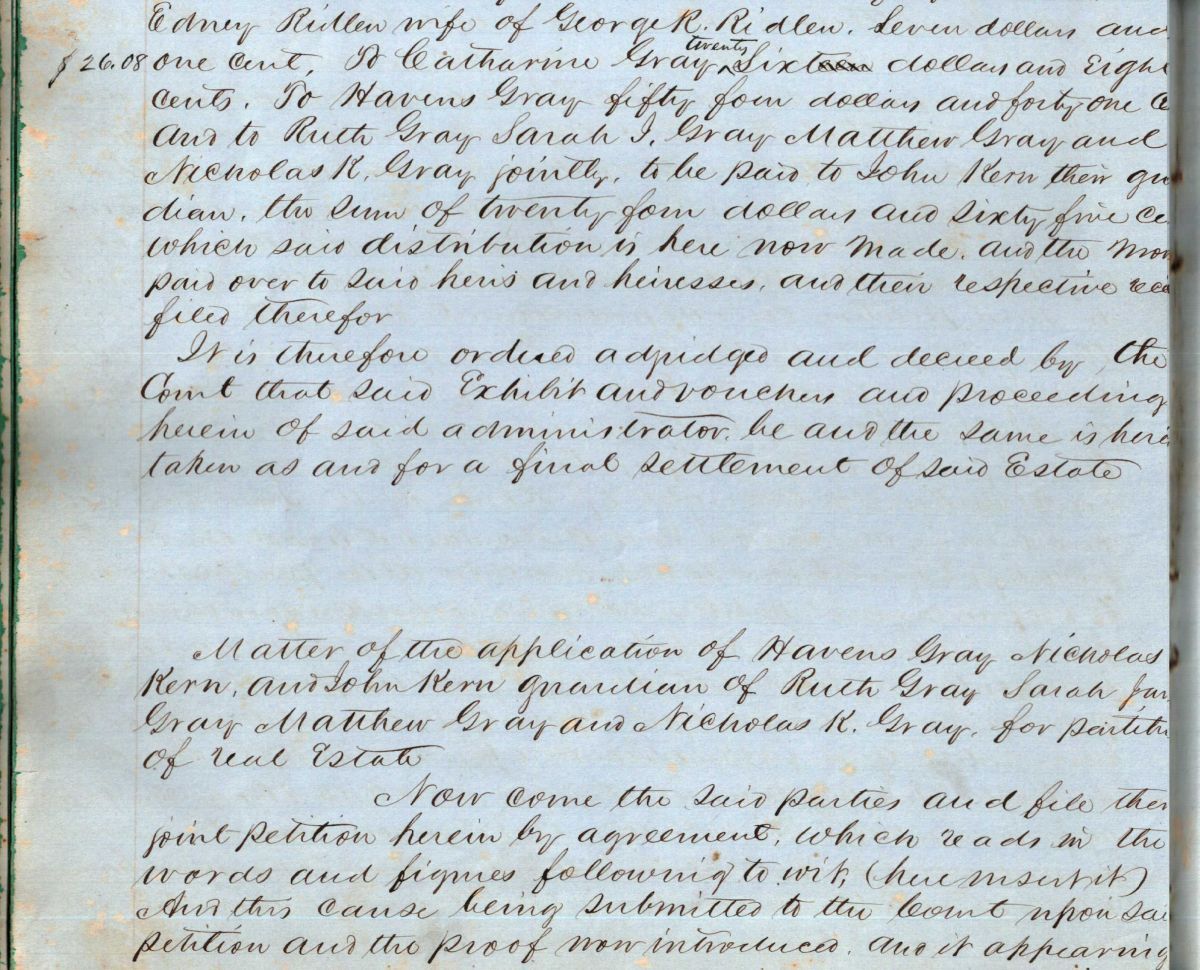 Edney Ridlen wife of George R. Ridlen. Seven dollars and
$26.08 one cent, To Catharine Gray twenty Sixteen dollars and Eight
cents. To Havens Gray fifty four dollars and forty one Ce
And to Ruth Gray Sarah J. Gray Matthew Gray and
Nicholas K. Gray jointly, to be paid to John Kern their gu
dian, the sum of twenty four dollars and sixty five Ce
which said distribution is here now made, and the mon
paid over to said heirs and heiresses, and their respective rec
filed therefor
It is therefore ordered adjudged and decreed by the
Court that said Exhibit and vouchers and proceeding
herein of said administrator, be and the same is here
taken as and for a final settlement of said Estate
Matter of the application of Havens Gray Nicholas
Kern, and John Kern guardian of Ruth Gray Sarah Jan
Gray Matthew Gray and Nicholas K. Gray, for partiti
of real Estate
Now come the said parties and file their
joint petition herein by agreement, which reads in the
words and figures following to wit, (here insert it)
And this cause being submitted to the Court upon sai
petition and the proof now introduced, and it appearing